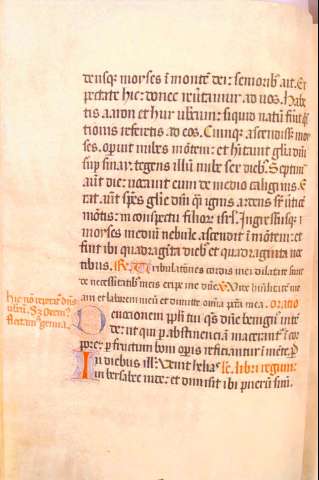 densq; moyses i monte dei: seniorib; ait. Ex
pectate hic: donec reu̅tamur ad uos. Habe
tis aaron et hur uobiscum: siquid natu̅ fu̅it q̅s
tionis refertis ad eos. Cumq; ascendiss; moy
ses. opuit nubes mo̅tem: et h̅itauit gl̅ia d̅ni
sup̅ sinay. tegens illu̅ nube sex dieb;. Septimo
aut̅ die: uocauit eum de medio caliginis. E
rat. aut̅ sp̅es gl̅ie d̅ni q̅i ignis. arde̅s sr̅ u̅tice̅
mo̅tis: in conspectu filior̅ isrl̅. Ingressusq;
moyses mediu̅ nebule. ascendit i monte̅: et
fuit ibi quadraginta dieb; et quadraginta noc
tibus. R̅. Tribulationes cordis mei dilatate sunt
de necessitatib; meis eripe me d̅ne. V̅. Vide humilitate̅ me
am et laborem meu̅ et dimitte omnia pc̅ta mea. Oratio
hic no̅ repetit̅ d̅ns
Deuotionem pp̅li tui q̅s d̅ne benign̅ inte̅
de: ut qui p̅ abstinentia̅ macerant̅ i cor
pore: p̅ fructum boni op̅is reficiantur i me̅te. P̅
In diebus ill̅. Venit helyas S̅c. libri regum:
in bersabee iude: et dimisit ibi pueru̅ suu̅.